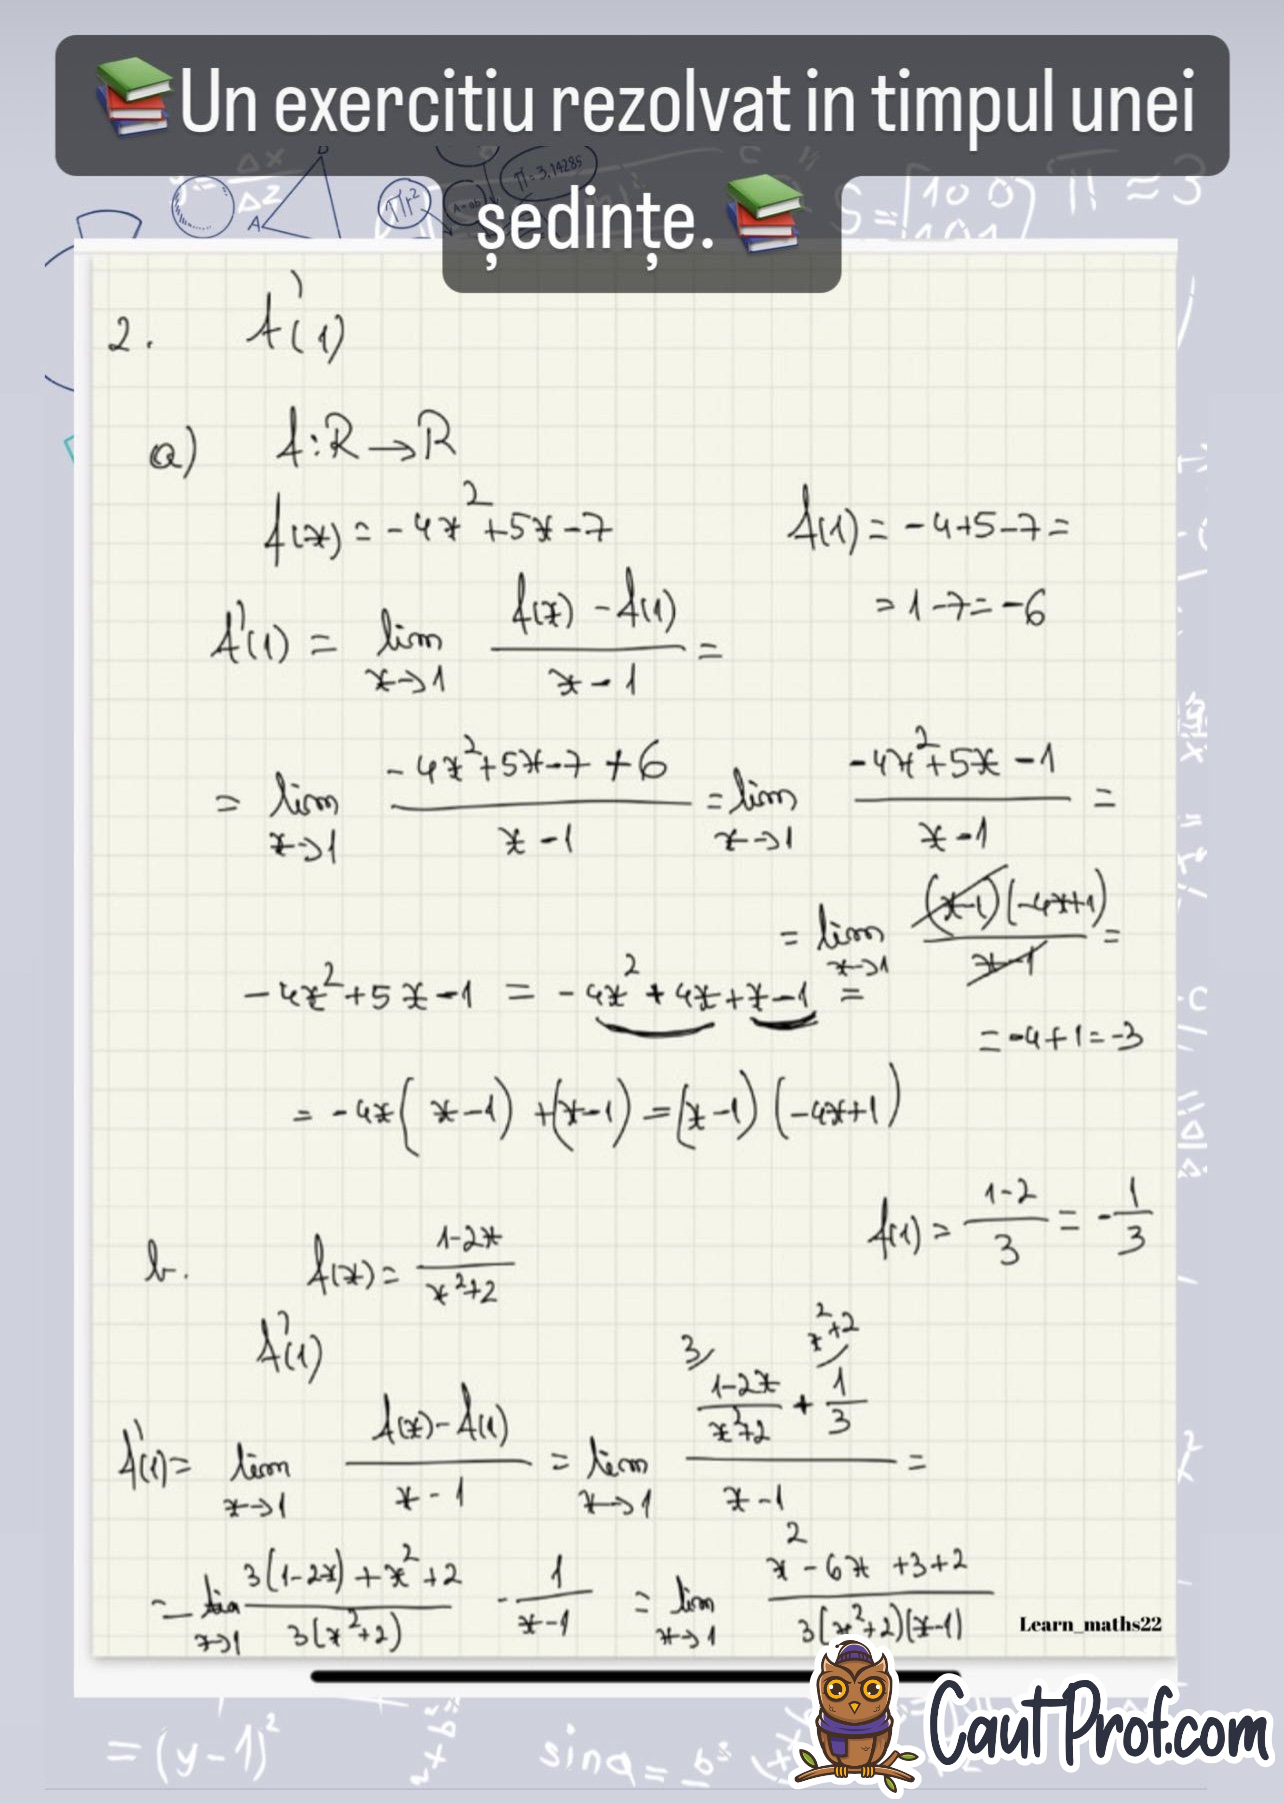 📚Un exercitiu rezolvat in timpul unei
ședințe. 📚
2. f'(1)
a) f:R→R
f(x) = -4x²+5x-7
f(1) = -4+5-7 =
= 1-7 = -6
f'(1) = lim x→1 (f(x) - f(1))/(x-1) =
= lim x→1 (-4x²+5x-7+6)/(x-1) = lim x→1 (-4x²+5x-1)/(x-1) =
= lim x→1 (x-1)(-4x+1)/(x-1) =
-4x²+5x-1 = -4x²+4x+x-1 =
= -4+1 = -3
= -4x(x-1)+(x-1) = (x-1)(-4x+1)
f(1) = (1-2)/3 = -1/3
b. f(x) = (1-2x)/(x²+2)
f'(1)
3/ x²+2/
f'(1) = lim x→1 (f(x)-f(1))/(x-1) = lim x→1 ((1-2x)/(x²+2) + 1/3)/(x-1) =
= lim x→1 (3(1-2x)+x²+2)/(3(x²+2)) · 1/(x-1) = lim x→1 (x²-6x+3+2)/(3(x²+2)(x-1))
Learn_maths22
CautProf.com
πr²
π=3.14285
Δx
Δz
A
π ≈ 3
= (y-1)²
sina = b